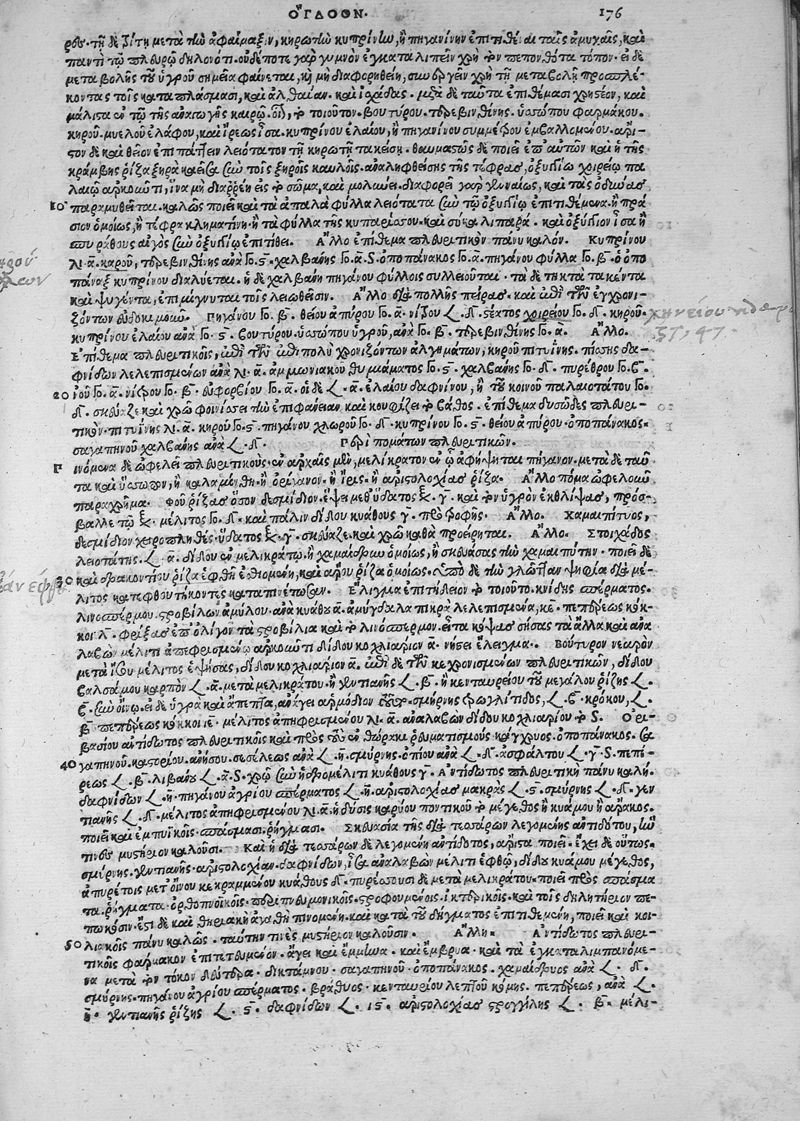 ὌΓΔΟΟΝ. 176
τῇ δὲ ἕκτῃ μετὰ τὴν ἀφαίμαξιν, κηρωτὴν κυπρίνην, ἢ πηγανίνην ἐπιτιθέναι ταῖς ἀμυχαῖς, καὶ
παντὶ τῷ πλευρῷ δηλονότι. οὐδέποτε γὰρ γυμνὸν ἐγκαταλιπεῖν χρὴ τὸν πεπονθότα τόπον. εἰ δὲ
μεταβολῆς τοῦ ὑγροῦ σημεῖα φαίνεται, καὶ μὴ διαφορηθείη, συνεργεῖν χρὴ τῇ μεταβολῇ προσπλέ-
κοντας τοῖς καταπλάσμασι, καὶ ἀλθαίαν. καὶ ἰσχάδας. μετὰ δὲ ταῦτα ἐπιθέμασι χρηστέον, καὶ
μάλιστα ἐν τῷ τῆς ἀναγωγῆς καιρῷ. οἷον, τὸ τοιοῦτον. βουτύρου. τερεβινθίνης. ὑσσώπου φαρμάκου.
κηροῦ. μυελοῦ ἐλάφου, καὶ ἴρεως ἴσα. κυπρίνου ἐλαίου, ἢ πηγανίνου συμμέτρου ἐμβαλλομένου. ἄρι-
στον δὲ καὶ θεῖον ἐπιπάττειν λειότατον τῇ κηρωτῇ τακείσῃ. θαυμαστῶς δὲ ποιεῖ ἐπ' αὐτῶν καὶ ἡ τῆς
κράμβης ῥίζα ξηρὰ καεῖσα σὺν τοῖς ξηροῖς καυλοῖς. ἀναληφθείσης τῆς τέφρας, ὀξυγγίῳ χοιρείῳ πα-
λαιῷ ἀρκοῦντι, ἵνα μὴ διαρρέῃ εἰς τὸ σῶμα, καὶ μολύνῃ. διαφορεῖ γὰρ γενναίως, καὶ τὰς ὀδύνας
10 παραμυθεῖται. καλῶς ποιεῖ καὶ τὰ ἁπαλὰ φύλλα λειότατα σὺν τῷ ὀξυγγίῳ ἐπιτιθέμενα. ἢ πρά-
σιον ὁμοίως, ἢ τέφρα κληματίνη. ἢ τὰ φύλλα τῆς κυπαρίσσου. καὶ σῦκα λιπαρά. καὶ ὀξύγγιον ἴσα ἢ
σπυράθους αἰγὸς σὺν ὀξυγγίῳ ἐπιτίθει. Ἄλλο ἐπίθεμα πλευριτικὸν πάνυ καλόν. Κυπρίνου
λι. α. κηροῦ, τερεβινθίνης ἀνὰ γο. ς. χαλβάνης γο. α. S. ὀποπάνακος γο. α. πηγάνου φύλλα γο. β. ὁ ὀπο
πάναξ κυπρίνου διαλύεται. ἡ δὲ χαλβάνη πηγάνου φύλλοις συλλειοῦται. τὰ δὲ τηκτὰ τακέντα
καὶ ψυγέντα, ἐπιμίγνυται τοῖς λειωθεῖσιν. Ἄλλο διὰ πολλῆς πείρας. καὶ ἐπὶ τῶν ἐγχρονι-
ζόντων εὐδοκιμοῦν. Πηγάνου γο. β. θείου ἀπύρου γο. α. νίτρου 𐅻. δ. στέατος χοιρείου γο. δ. κηροῦ.
κυπρίνου ἐλαίου ἀνὰ γο. ς. βουτύρου. ὑσσώπου ὑγροῦ, ἀνὰ γο. β. τερεβινθίνης γο. α. Ἄλλο.
Ἐπίθεμα πλευριτικοῖς, ἐπὶ τῶν ἐπὶ πολὺ χρονιζόντων ἀλγημάτων, κηροῦ πιτυΐνης. πίσσης δα-
φνίδων λελεπισμένων ἀνὰ λι. α. ἀμμωνιακοῦ θυμιάματος γο. ς. χαλβάνης γο. δ. πυρέθρου γο. β.
20 ἰοῦ γο. α. νίτρου γο. β. εὐφορβίου γο. α. οἱ δὲ 𐅻. α. ἐλαίου δαφνίνου, ἢ τοῦ κοινοῦ παλαιοτάτου γο.
δ. σκεύαζε καὶ χρῶ φοινίσσει τὴν ἐπιφάνειαν καὶ κουφίζει τὸ βάθος. ἐπίθεμα δυσῶδες πλευρι-
τικόν. πιτυΐνης λι. α. κηροῦ γο. ς. πηγάνου χλωροῦ γο. δ. κυπρίνου γο. ς. θείου ἀπύρου. ὀποπάνακος.
σαγαπηνοῦ χαλβάνης ἀνὰ 𐅻. δ. Περὶ πομάτων πλευριτικῶν.
Πινόμενα δὲ ὠφελεῖ πλευριτικοὺς. ἐν ἀρχαῖς μὲν, μελίκρατον ἐν ᾧ ἀφήψηται πήγανον. μετὰ δὲ ταῦ-
τα καὶ ὕσσωπον, ἢ καλαμίνθη. ἢ ὀρίγανον. ἢ ἶρις. ἢ ἀριστολοχίας ῥίζα. Ἄλλο πόμα ὠφελοῦν
παραχρῆμα. Φοῦ ῥίζας ὅσον δεσμίδιον. ἕψει μεθ' ὕδατος ξ. γ. καὶ τὸν ὑγρὸν ἐκθλίψας, πρόσ-
βαλλε τῷ ξ. μέλιτος γο. δ. καὶ πάλιν δίδου κυάθους γ. πρὸ τροφῆς. Ἄλλο. Χαμαιπίτυος,
δεσμίδιον χειροπληθὲς. ὕδατος ξ. γ. σκεύαζε. καὶ χρῶ καθὰ προείρηται. Ἄλλο. Στοιχάδος
λειοτάτης. 𐅻. α. δίδου ἐν μελικράτῳ. ἢ χαμαίδρυν ὁμοίως, ἢ σκευάσας τὴν χαμαιπίτυν. ποιεῖ δὲ
30 καὶ δρακοντίου ῥίζα ἑφθὴ ἐσθιομένη, καὶ ἄρου ῥίζα ὁμοίως. ὑπὸ δὲ τὴν γλῶτταν ψηφία διὰ μέ-
λιτος καὶ τεφθοῦ τήκοντες καταπινέτωσαν. Ἔλιγμα ἐπιτήδειον τὸ τοιοῦτο. κνίδης σπέρματος.
λινοσπέρμου. στροβίλων. ἀμύλου. ἀνὰ κύαθον α. ἀμύγδαλα πικρὰ λελεπισμένα, κε. πεπέρεως κόκ-
κοι λ. φρύξας ἐπ' ὀλίγον τὰ στροβίλια καὶ τὸ λινόσπερμον. εἶτα κόψας σήσας τὰ ἄλλα καὶ ἀνα
λαβὼν μέλιτι ἀπεφρισμένῳ ἀρκοῦντι δίδου κοχλιάριον α. νήστει ἔλειγμα. Βούτυρον νεαρὸν
μετὰ ἴσου μέλιτος ἑψήσας, δίδου κοχλιάριον α. ἐπὶ δὲ τῶν κεχρονισμένων πλευριτικῶν, δίδου
βαλσάμου καρπὸν 𐅻. α. μετὰ μελικράτου. ἢ γεντιανῆς 𐅻. β. ἢ κενταυρείου τοῦ μεγάλου ῥίζης 𐅻.
β. σὺν οἴνῳ. εἰ δὲ ὑγρὰ καὶ ἄπεπτα, ἀνάγει ἁρμόδιον σμύρνης τρωγλίτιδος, 𐅻. β. κρόκου, 𐅻.
β. πεπέρεως κόκκοι ιε. μέλιτος ἀπηφρισμένου λι. α. ἀναλαβὼν δίδου κοχλιαρίου τὸ S. Ὀρι-
βασίου ἀντίδοτος πλευριτικοῖς καὶ πρὸς τοὺς ἐν θώρακι ῥευματισμοὺς. κέγχρους. ὀποπάνακος. σα
40 γαπηνοῦ. καστορίου. ἀνήσου. σεσέλεως ἀνὰ 𐅻. η. σμύρνης. ὀπίου ἀνὰ 𐅻. δ. ἀσφάλτου 𐅻. γ. S. πεπέ-
ρεως 𐅻. β. λιβάνου 𐅻. α. S. χρῶ σὺν ὑδρομέλιτι κυάθους γ. Ἀντίδοτος πλευριτικὴ πάνυ καλὴ.
δαφνίδων 𐅻. η. πηγάνου ἀγρίου σπέρματος 𐅻. η. ἀριστολοχίας μακρᾶς 𐅻. ς. σμύρνης 𐅻. δ. γεν
τιανῆς 𐅻. δ. μέλιτος ἀπηφρισμένου λι. α. ἡ δόσις καρύου ποντικοῦ τὸ μέγεθος ἢ κυάμου ἢ ἄρακος.
ποιεῖ καὶ ἐμπυϊκοῖς. σπάσμασι. ῥήγμασι. Σκευασία τῆς διὰ τεσσάρων λεγομένης ἀντιδότου, ἣν
τινὲς μυστήριον καλοῦσι. Καὶ ἡ διὰ τεσσάρων δὲ λεγομένη ἀντίδοτος, ἄριστα ποιεῖ. ἔχει δὲ οὕτως.
σμύρνης. γεντιανῆς. ἀριστολοχίαν. δαφνίδων, ἴσα ἀναλαβὼν μέλιτι ἑφθῷ, δίδου κυάμου μέγεθος,
ἀπυρέτοις μετ' οἴνου κεκραμμένου κυάθους δ. πυρέσσουσι δὲ μετὰ μελικράτου. ποιεῖ πρὸς σπάσμα
τα. ῥήγματα. ὀρθοπνοϊκοῖς. περιπνευμονικοῖς. στροφουμένοις. ἰκτερικοῖς. καὶ τοῖς δηλητήριον πε-
πωκόσιν. ἔστι δὲ καὶ θηριακὴ ἀγαθὴ πινομένη. καὶ κατὰ τοῦ δήγματος ἐπιτιθεμένη, ποιεῖ καὶ κοι-
50 λιακοῖς πάνυ καλῶς. ταύτην τινὲς μυστήριον καλοῦσιν. Ἄλλη. Ἀντίδοτος πλευρι-
τικοῖς φάρμακον ἐπιτετευγμένον. ἄγει καὶ ἔμμηνα. καὶ ἔμβρυα. καὶ τὰ ἐγκαταλιμπανόμε-
να μετὰ τὸν τόκον δεύτερα. δικτάμνου. σαγαπηνοῦ. ὀποπάνακος. χαμαίδρυος ἀνὰ 𐅻. δ.
σμύρνης. πηγάνου ἀγρίου σπέρματος. βράθυος. κενταυρείου λεπτοῦ κόμης. πεπέρεως, ἀνὰ 𐅻.
η. γεντιανῆς ῥίζης 𐅻. ς. δαφνίδων 𐅻. ις. ἀριστολοχίας στρογγύλης 𐅻. β. μέλι-